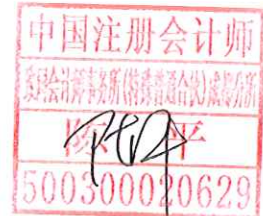 中国注册会计师
会计师事务所(特殊普通合伙)成都分所
平
500300020629